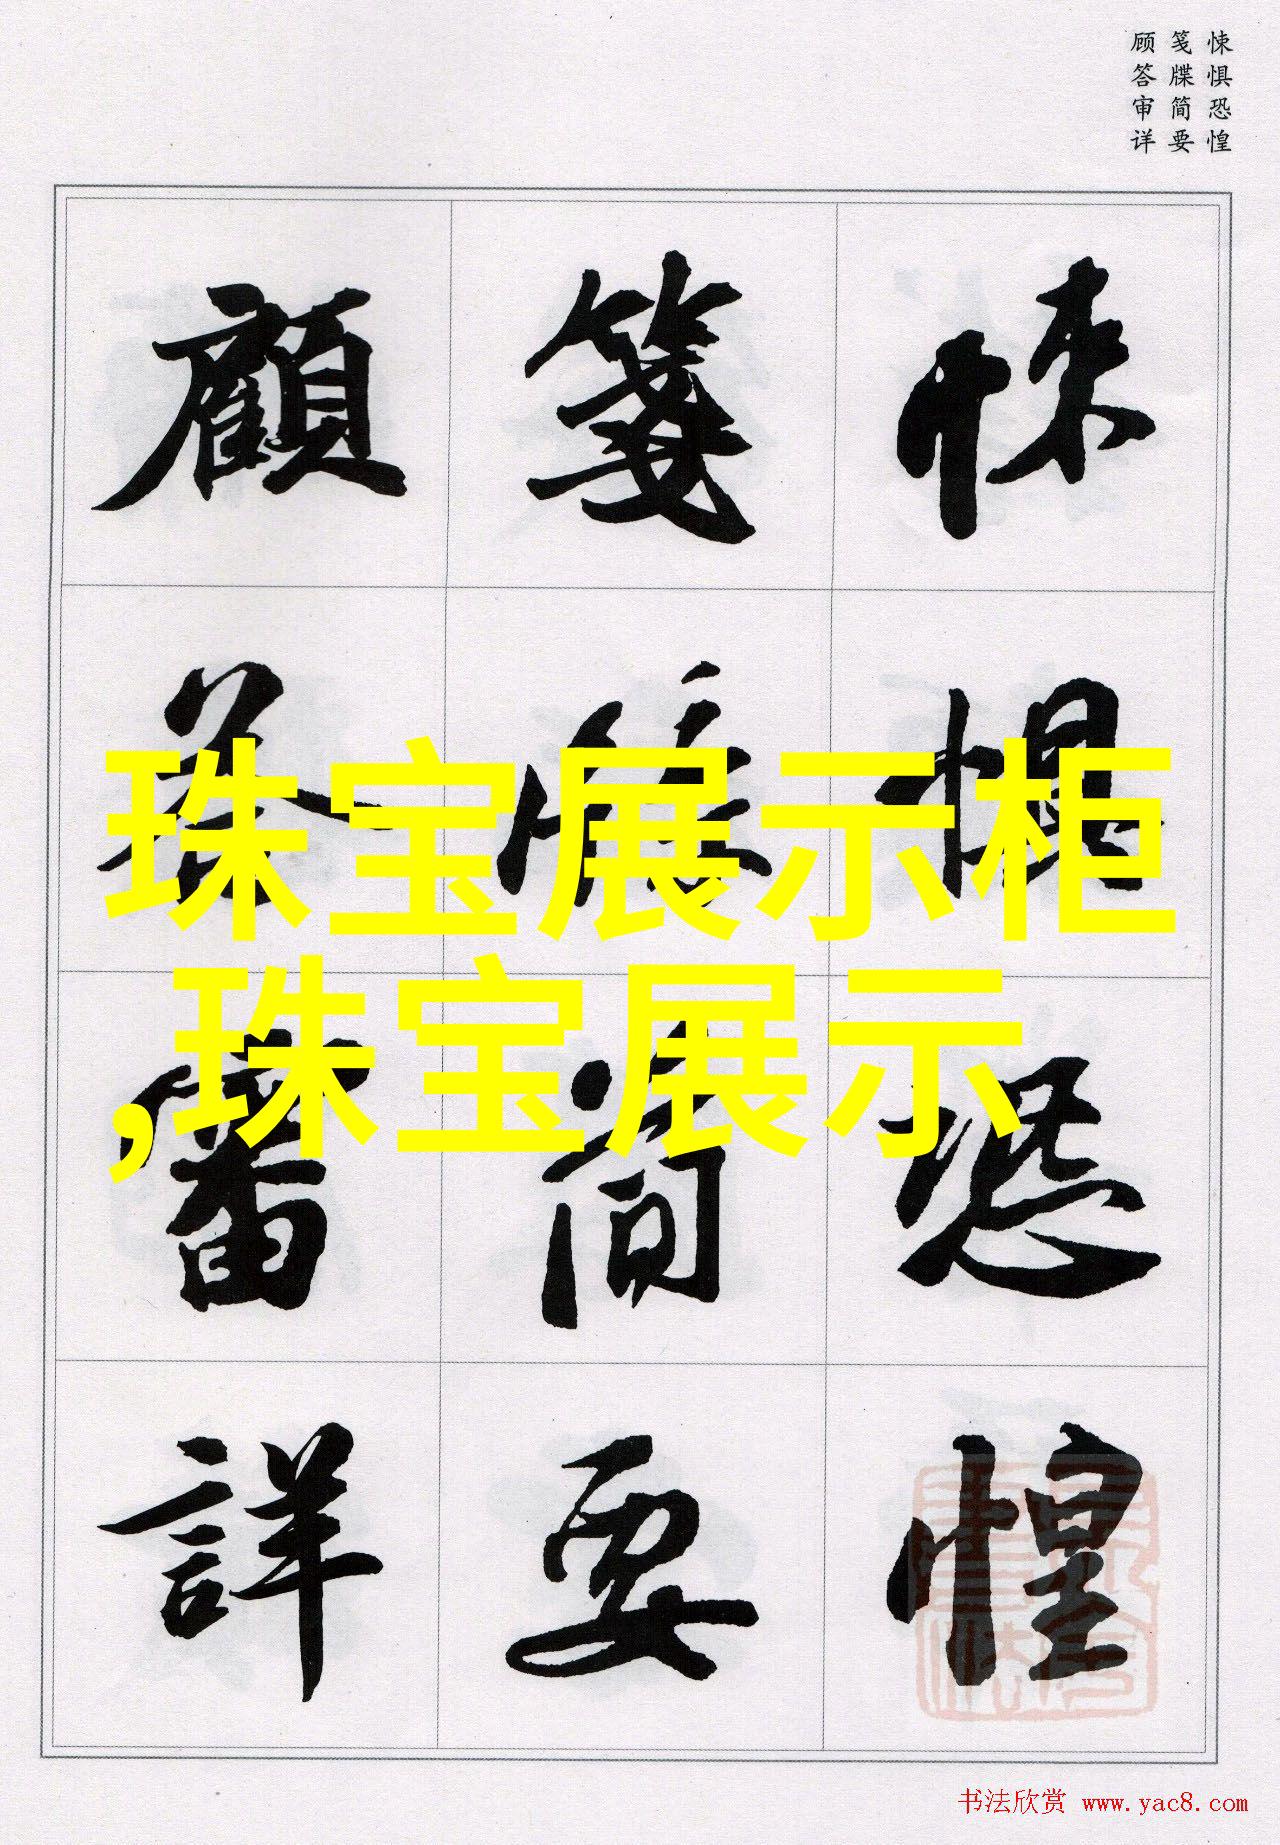 悚惧恐惶
笺牒简要
顾答审详
悚惧恐惶
箋牒簡要
顧答審詳
珠宝展示柜
,珠宝展示
书法欣赏 www.yac8.com